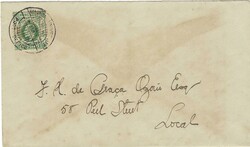 J. A. de Graça Ozorio Esq.
58 Peel Street
Local